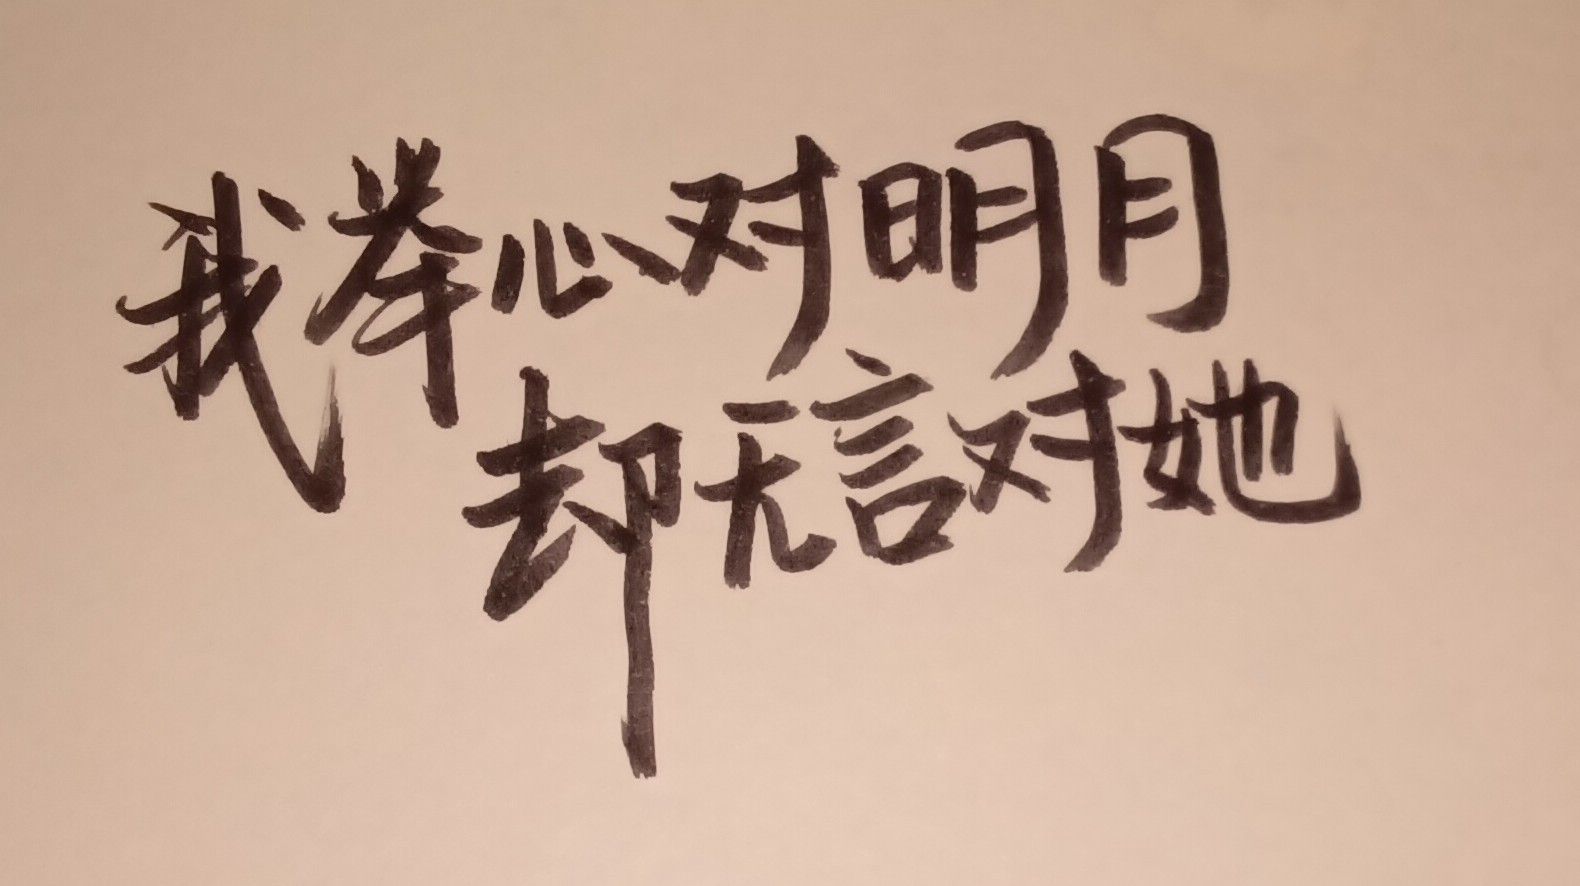 我举心对明月
却无言对她